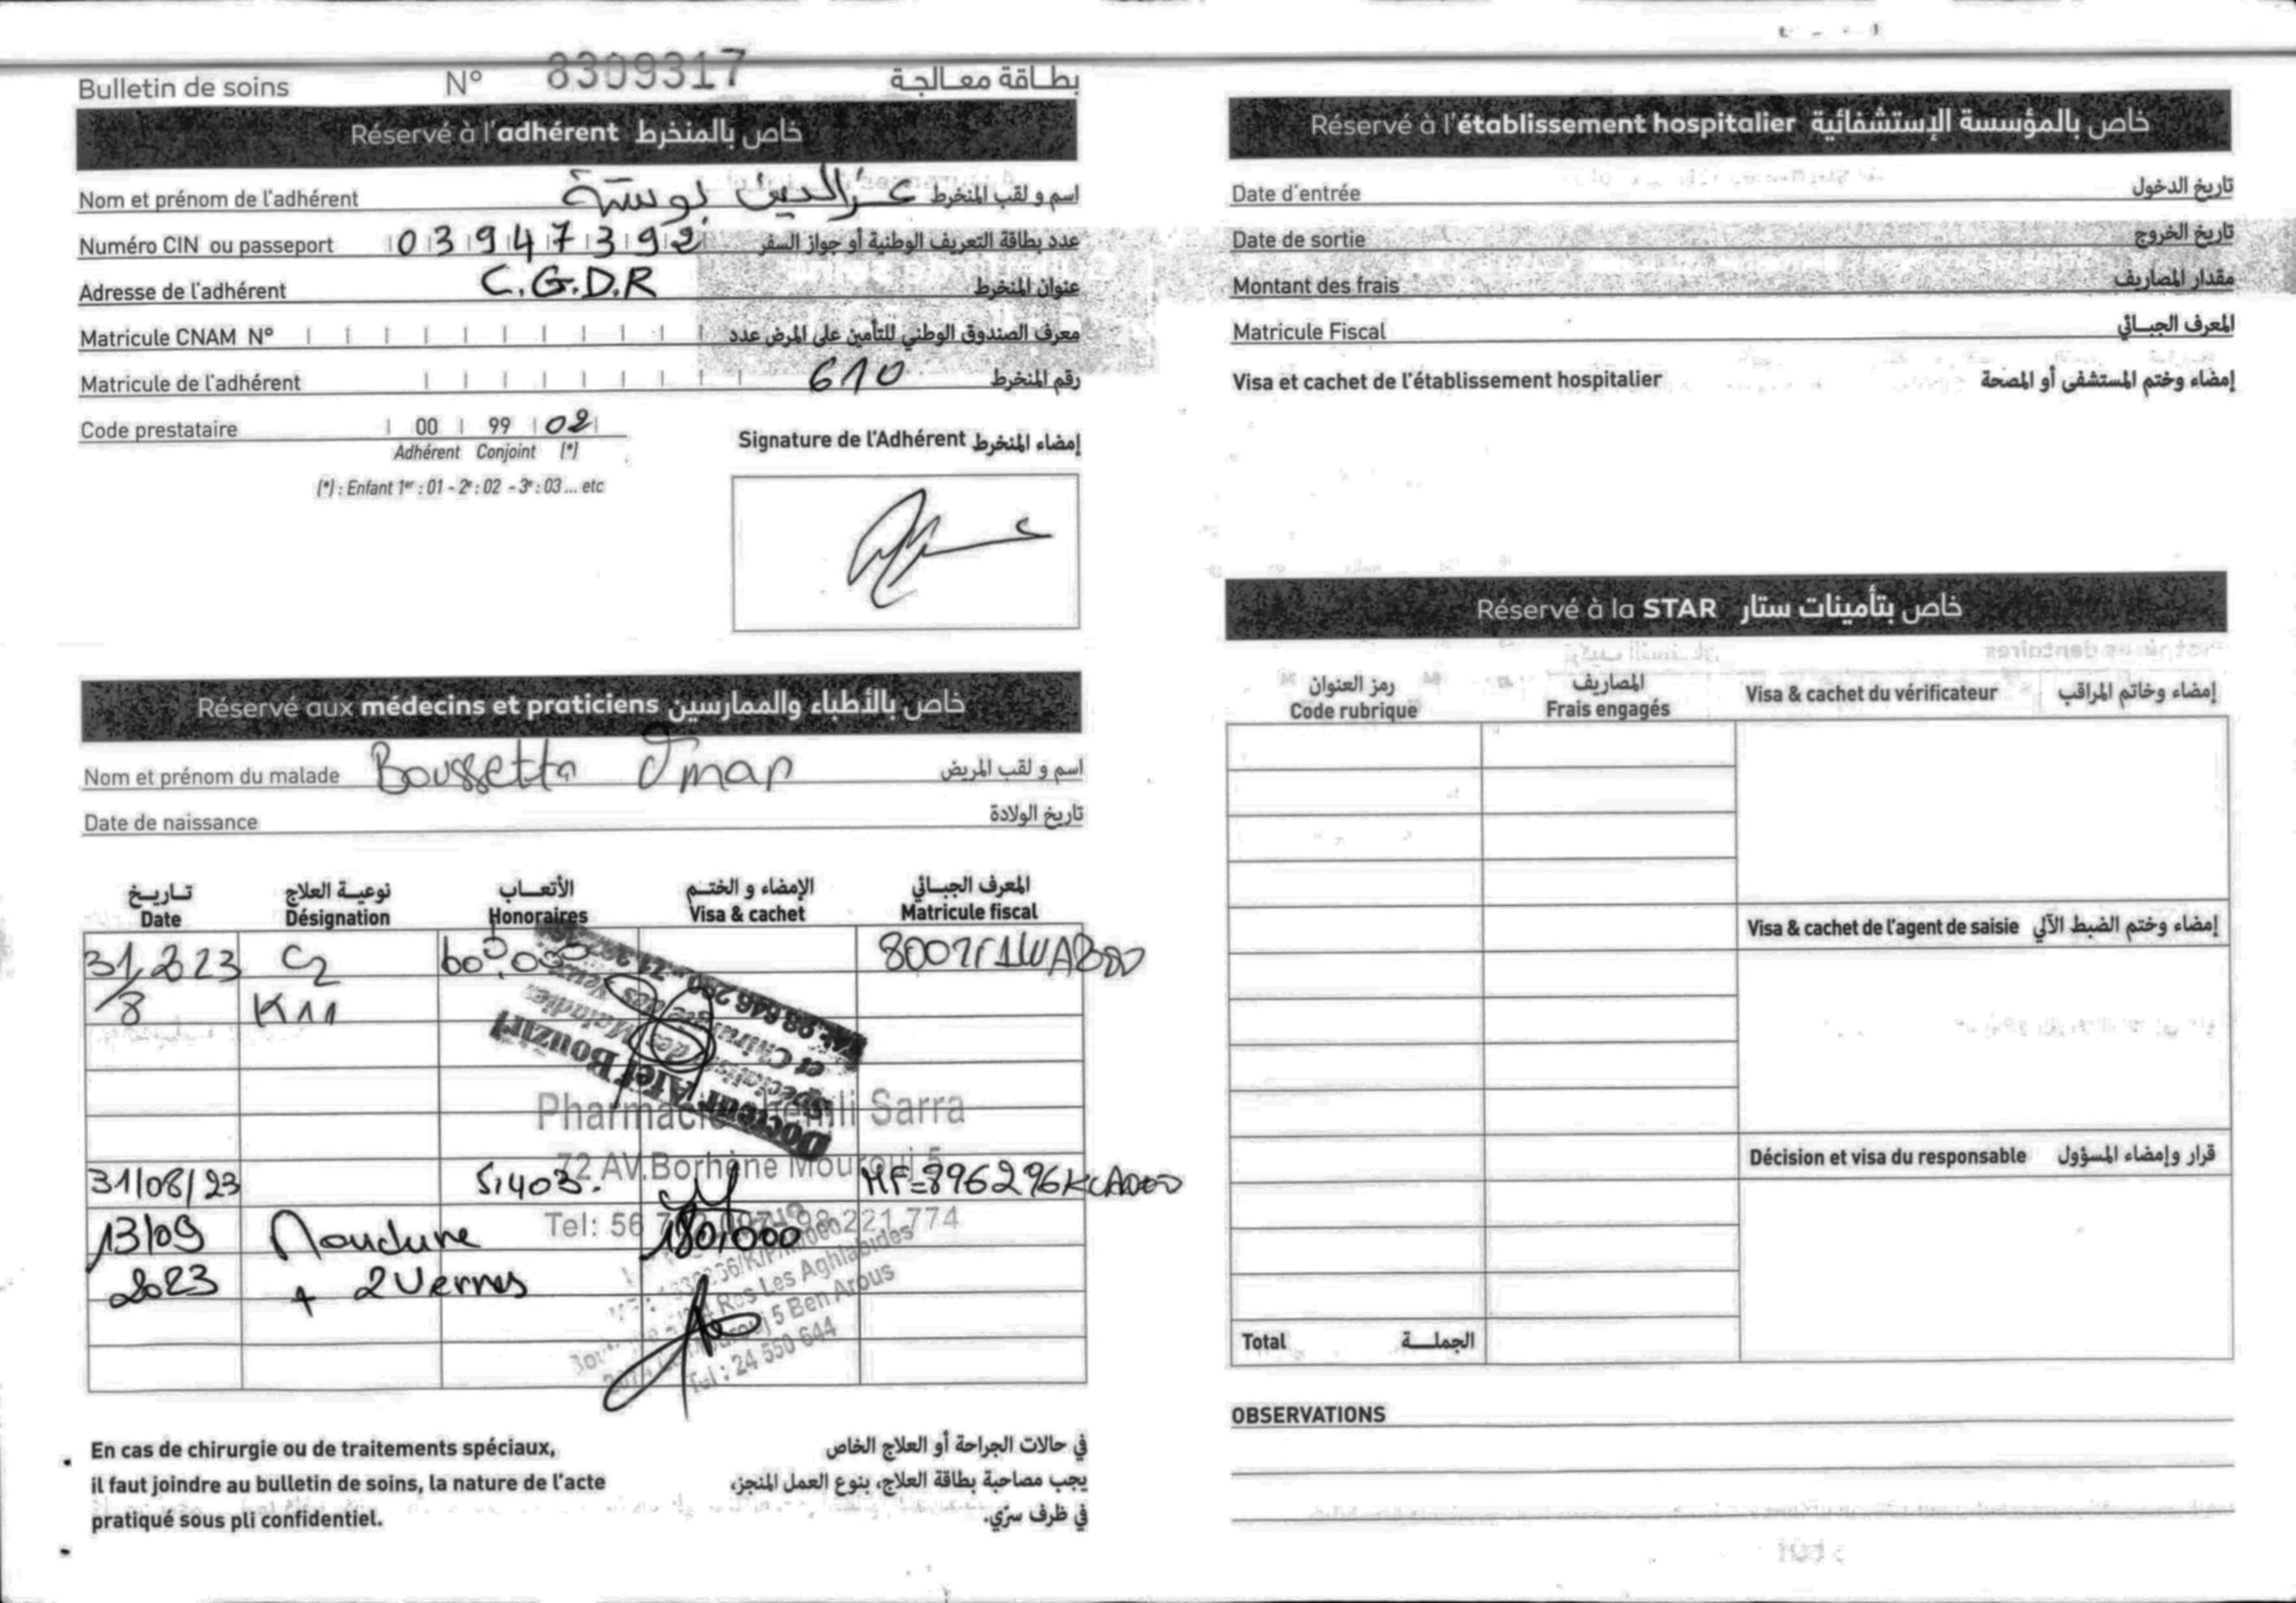 Bulletin de soins N° 8309317 بطاقة معالجة
Réservé à l'adhérent خاص بالمنخرط
Nom et prénom de l'adhérent عزالدين بوستة اسم و لقب المنخرط
Numéro CIN ou passeport 03947392 عدد بطاقة التعريف الوطنية أو جواز السفر
Adresse de l'adhérent C.G.D.R عنوان المنخرط
Matricule CNAM N° معرف الصندوق الوطني للتأمين على المرض عدد
Matricule de l'adhérent 610 رقم المنخرط
Code prestataire 00 99 02
Adhérent Conjoint (*)
(*) : Enfant 1er : 01 - 2e : 02 - 3e : 03 ... etc
Signature de l'Adhérent إمضاء المنخرط
Réservé aux médecins et praticiens خاص بالأطباء والممارسين
Nom et prénom du malade Boussetta Omar اسم و لقب المريض
Date de naissance تاريخ الولادة
تاريخ نوعية العلاج الأتعاب الإمضاء و الختم المعرف الجبائي
Date Désignation Honoraires Visa & cachet Matricule fiscal
31/8/2023 C2 60,000
K11
Docteur Atef Bouzid
Spécialiste des Maladies
et Chirurgie des Yeux
Pharmacie Sarra
72 AV.Borhène Mourouj 5
31/08/23 5,403. MF=896296K/A000
Tel: 56 98 221 774
13/09 Monture 180,000
2023 + 2 Verres
Res Les Aghlabides
5 Ben Arous
Tel : 24 550 644
En cas de chirurgie ou de traitements spéciaux,
il faut joindre au bulletin de soins, la nature de l'acte
pratiqué sous pli confidentiel.
في حالات الجراحة أو العلاج الخاص
يجب مصاحبة بطاقة العلاج، بنوع العمل المنجز،
في ظرف سرّي.
Réservé à l'établissement hospitalier خاص بالمؤسسة الإستشفائية
Date d'entrée تاريخ الدخول
Date de sortie تاريخ الخروج
Montant des frais مقدار المصاريف
Matricule Fiscal المعرف الجبائي
Visa et cachet de l'établissement hospitalier إمضاء وختم المستشفى أو المصحة
Réservé à la STAR خاص بتأمينات ستار
رمز العنوان المصاريف
Code rubrique Frais engagés Visa & cachet du vérificateur إمضاء وخاتم المراقب
Visa & cachet de l'agent de saisie إمضاء وختم الضبط الآلي
Décision et visa du responsable قرار وإمضاء المسؤول
Total الجملة
OBSERVATIONS